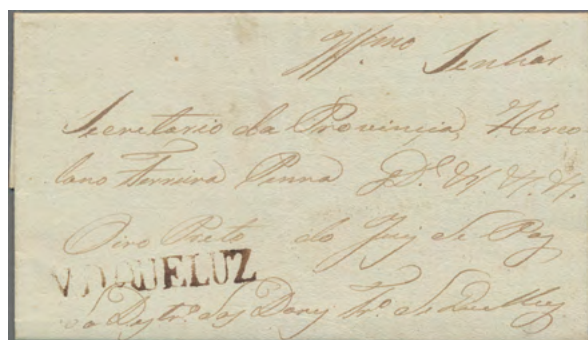 Illmo Senhor
Secretario da Provincia, Herco
lano Ferreira Penna D.r &. &. &.
Oiro Preto do Juiz de Paz
V. QUELUZ
do Dystr.o das Dores